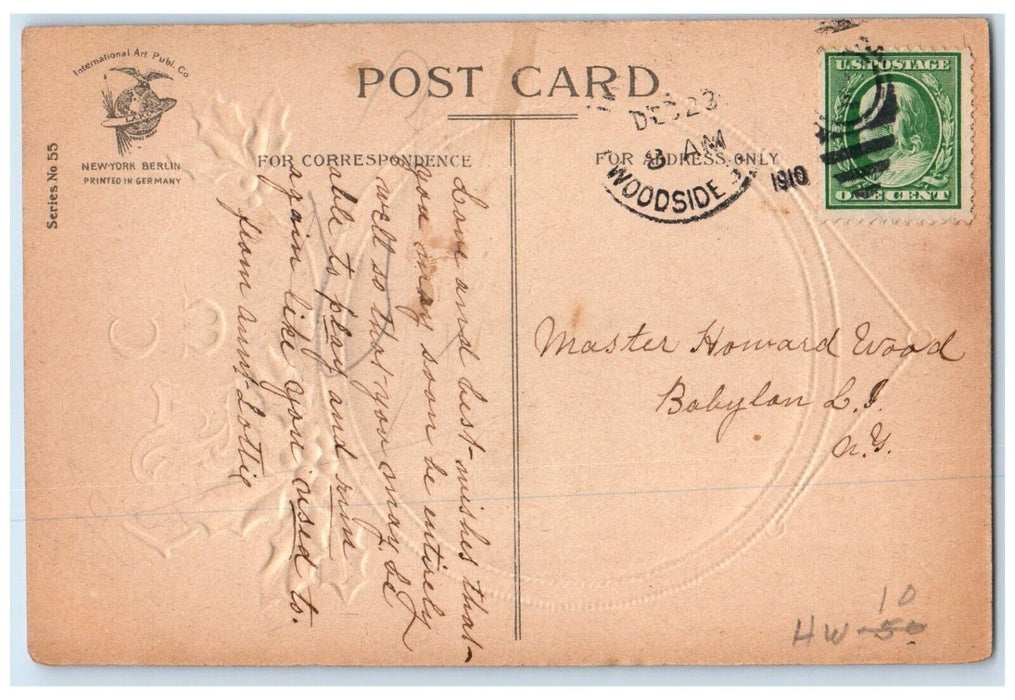 International Art Publ. Co
NEW-YORK BERLIN
PRINTED IN GERMANY
Series No 55
POST CARD
FOR CORRESPONDENCE
FOR ADDRESS ONLY
DEC 23
8 AM
WOODSIDE
1910
U.S. POSTAGE
ONE CENT
Love and best-wishes that-
you may soon be entirely
well so that you may be
able to play and run
again like you ussed to.
from aunt Lottie
Master Howard Wood
Babylon L.I.
N.Y.
10
HW 50